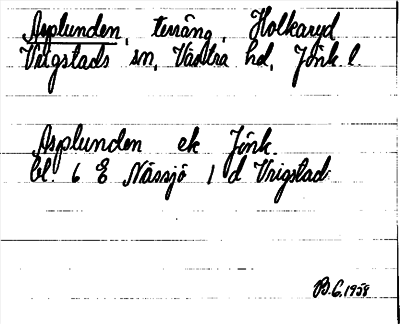 Asplunden, terräng, Holkaryd
Vrigstads sn, Västra hd, Jönk. l.
Asplunden ek Jönk.
bl. 6 E Nässjö 1 d Vrigstad
B.G. 1958